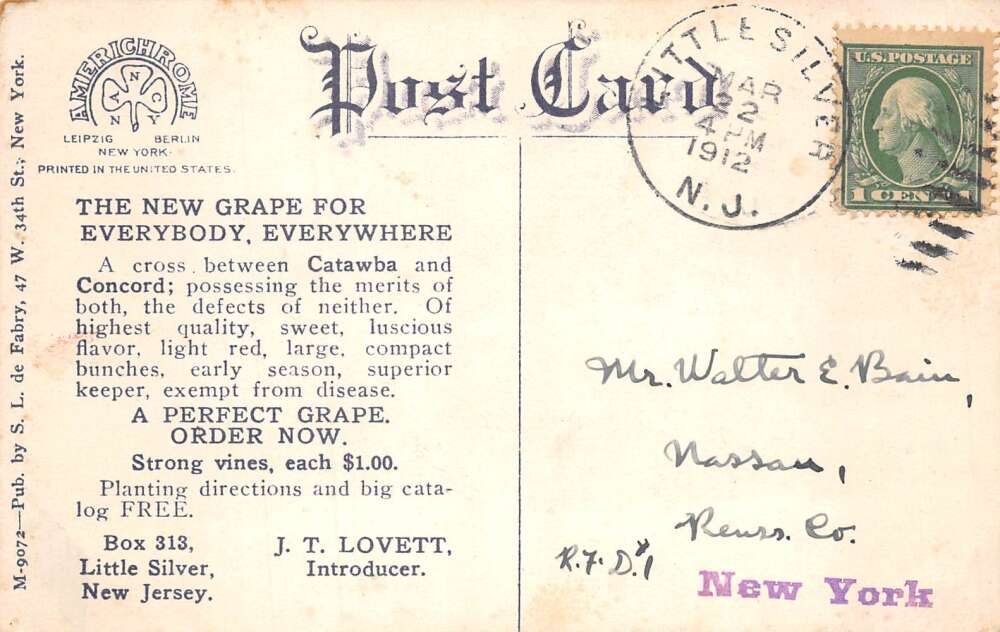 AMERICHROME
N A N C Y
LEIPZIG BERLIN
NEW YORK
PRINTED IN THE UNITED STATES.
M-9072—Pub. by S. L. de Fabry, 47 W. 34th St., New York.
Post Card
LITTLE SILVER
MAR
22
4 PM
1912
N.J.
U.S. POSTAGE
1 CENT
THE NEW GRAPE FOR
EVERYBODY, EVERYWHERE
A cross between Catawba and
Concord; possessing the merits of
both, the defects of neither. Of
highest quality, sweet, luscious
flavor, light red, large, compact
bunches, early season, superior
keeper, exempt from disease.
A PERFECT GRAPE.
ORDER NOW.
Strong vines, each $1.00.
Planting directions and big cata-
log FREE.
Box 313,
Little Silver,
New Jersey.
J. T. LOVETT,
Introducer.
Mr. Walter E. Bain,
Nassau,
Renss. Co.
R.F.D.#1
New York